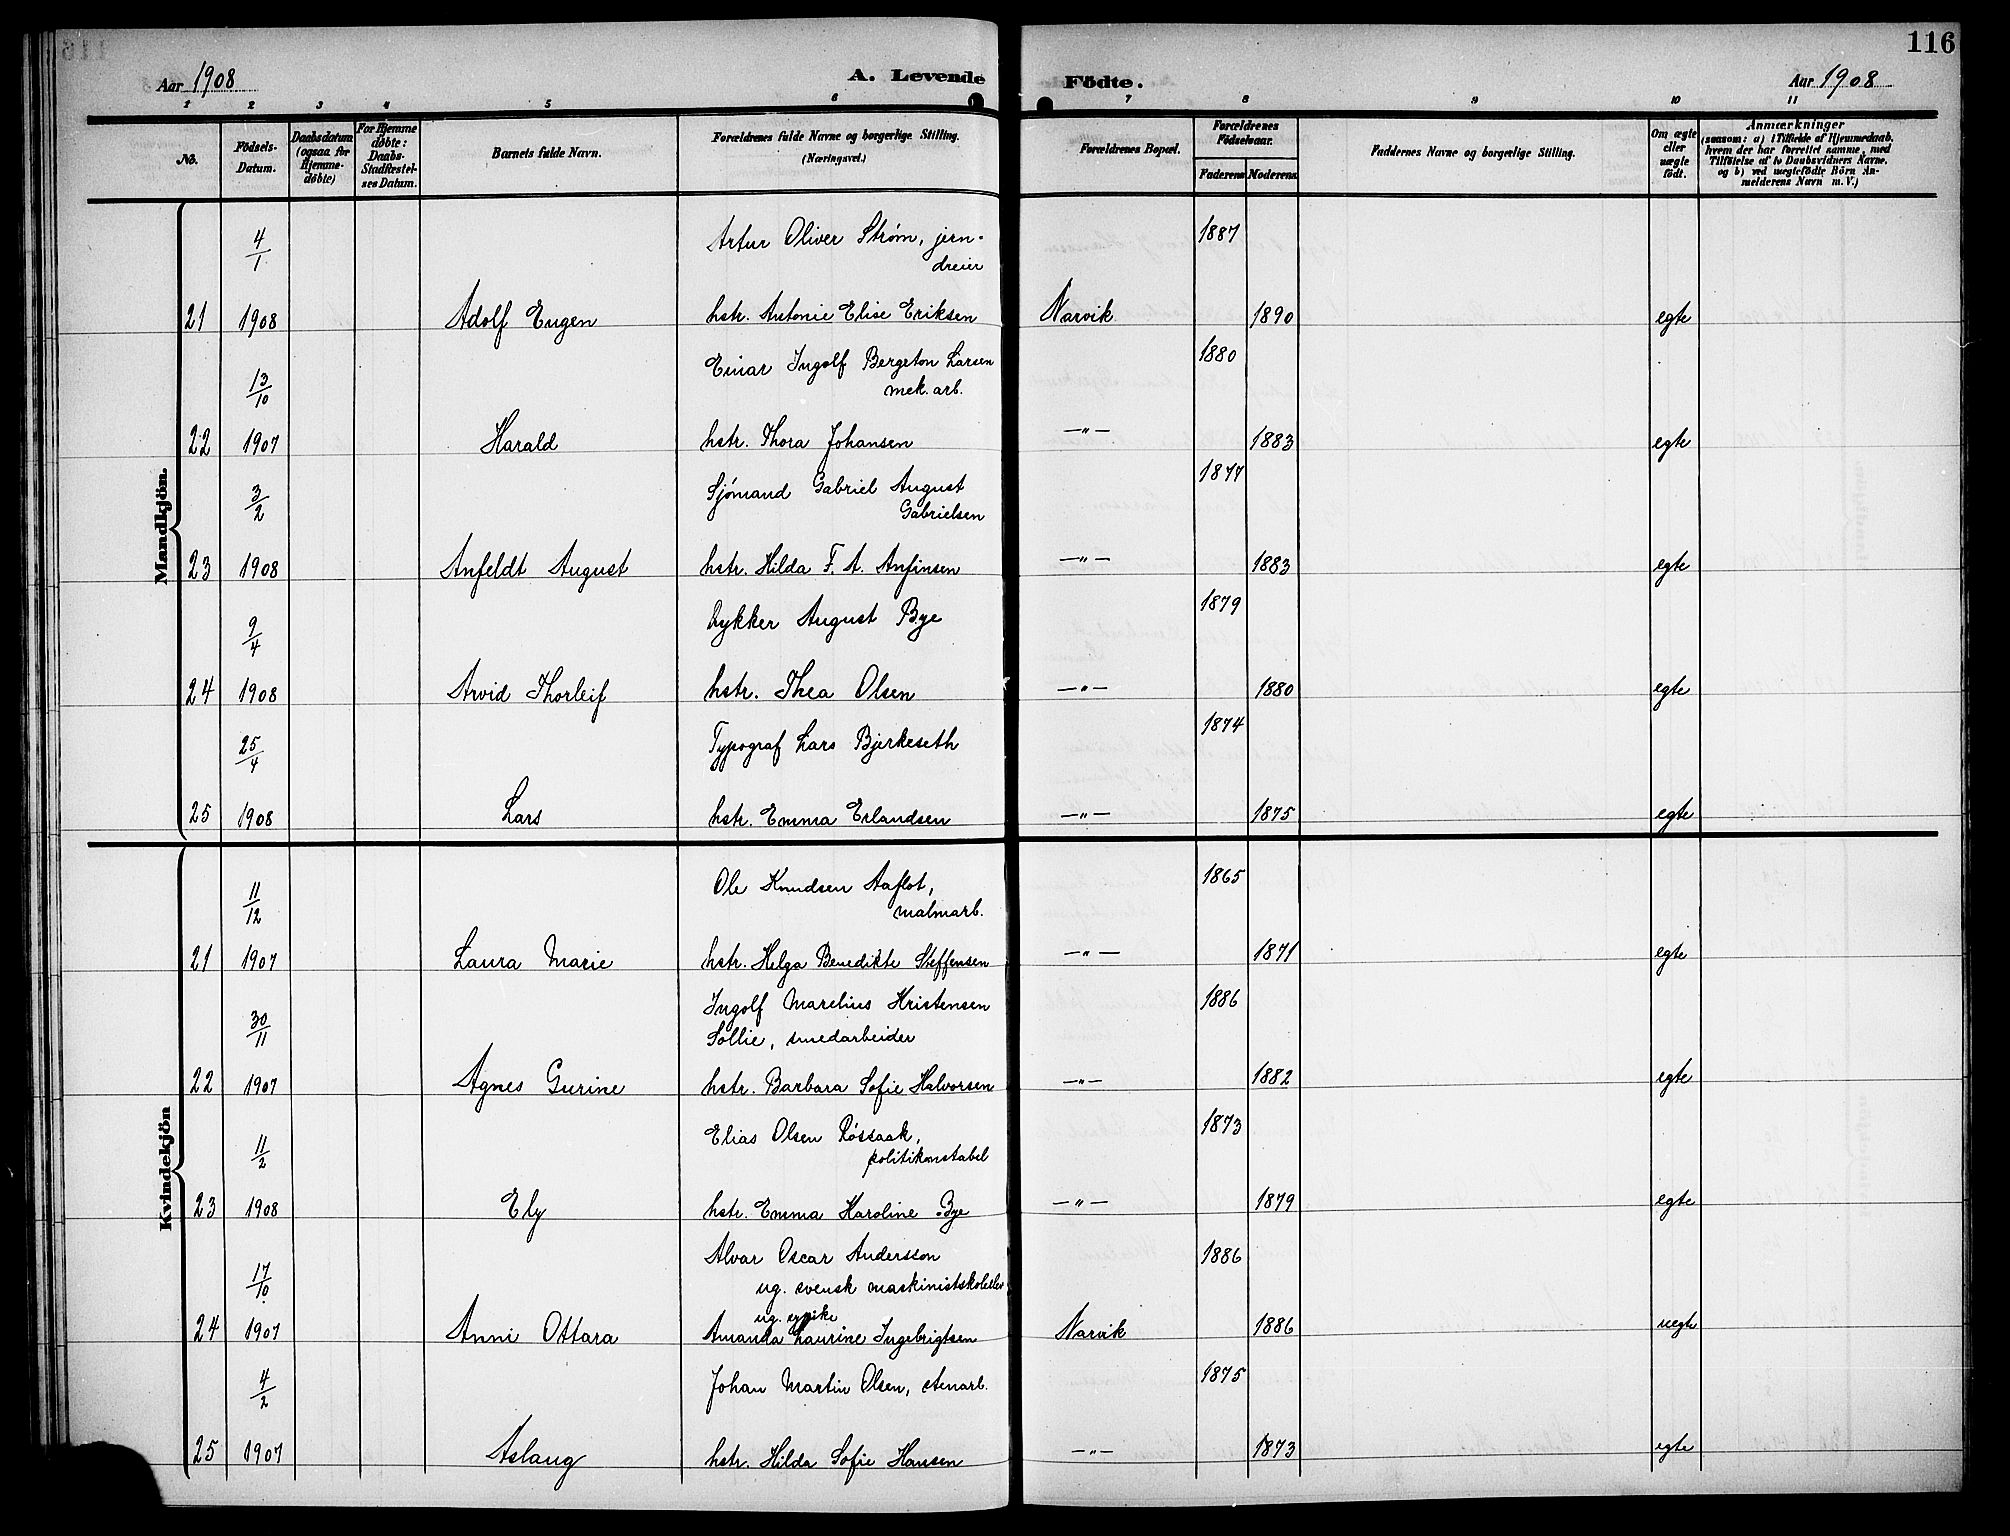 116
Aar 1908
A. Levende
Fødte.
Aar 1908
1 2 3 4 5 6 7 8 9 10 11
No.
Fødsels-
Datum.
Daabsdatum
(ogsaa for
Hjemme-
døbte)
For Hjemme
døbte:
Daabs-
Stadfæstel-
ses Datum.
Barnets fulde Navn.
Forældrenes fulde Navne og borgerlige Stilling.
(Næringsvei.)
Forældrenes Bopæl.
Forældrenes
Fødselsaar.
Faderens Moderens
Faddernes Navne og borgerlige Stilling.
Om ægte
eller
uægte
født.
Anmærkninger
(saasom: a) i Tilfælde af Hjemmedaab,
hvem der har forrettet samme, med
Tilføielse af to Daabsvidners Navne,
og b) ved uægtefødte Børn An-
melderens Navn m. V.)
Mandkjön.
4/1 Artur Oliver Strøm, jern- 1887
dreier
21 1908 Adolf Eugen hstr. Antonie Elise Eriksen Narvik 1890 egte
Einar Ingolf Bergeton Larsen 1880
13/10 mek. arb.
22 1907 Harald hstr. Thora Johansen —"— 1883 egte
3/2 Sjømand Gabriel August 1877
Gabrielsen
23 1908 Anfeldt August hstr. Hilda F. A. Anfinsen —"— 1883 egte
9/4 Dykker August Bye 1879
24 1908 Arvid Thorleif hstr. Thea Olsen —"— 1880 egte
25/4 Typograf Lars Bjerkeseth 1874
25 1908 Lars hstr. Emma Erlandsen —"— 1875 egte
Kvindekjön
11/12 Ole Knudsen Aaflot, 1865
malmarb.
21 1907 Laura Marie hstr. Helga Benedikte Steffensen —"— 1871 egte
Ingolf Marelius Kristensen 1886
30/11 Sollie, smedarbeider
22 1907 Agnes Gurine hstr. Barbara Sofie Halvorsen —"— 1882 egte
11/2 Elias Olsen Røssaak, 1873
politikonstabel
23 1908 Ely hstr. Emma Karoline Bye —"— 1879 egte
Alvar Oscar Andersson 1886
17/10 ug. svensk maskinistskoleelev
ug. pike
24 1907 Anni Ottara Amanda Laurine Ingebrigtsen Narvik 1886 uegte
4/2 Johan Martin Olsen, stenarb. 1875
25 1907 Aslaug hstr. Hilda Sofie Hansen —"— 1873 egte